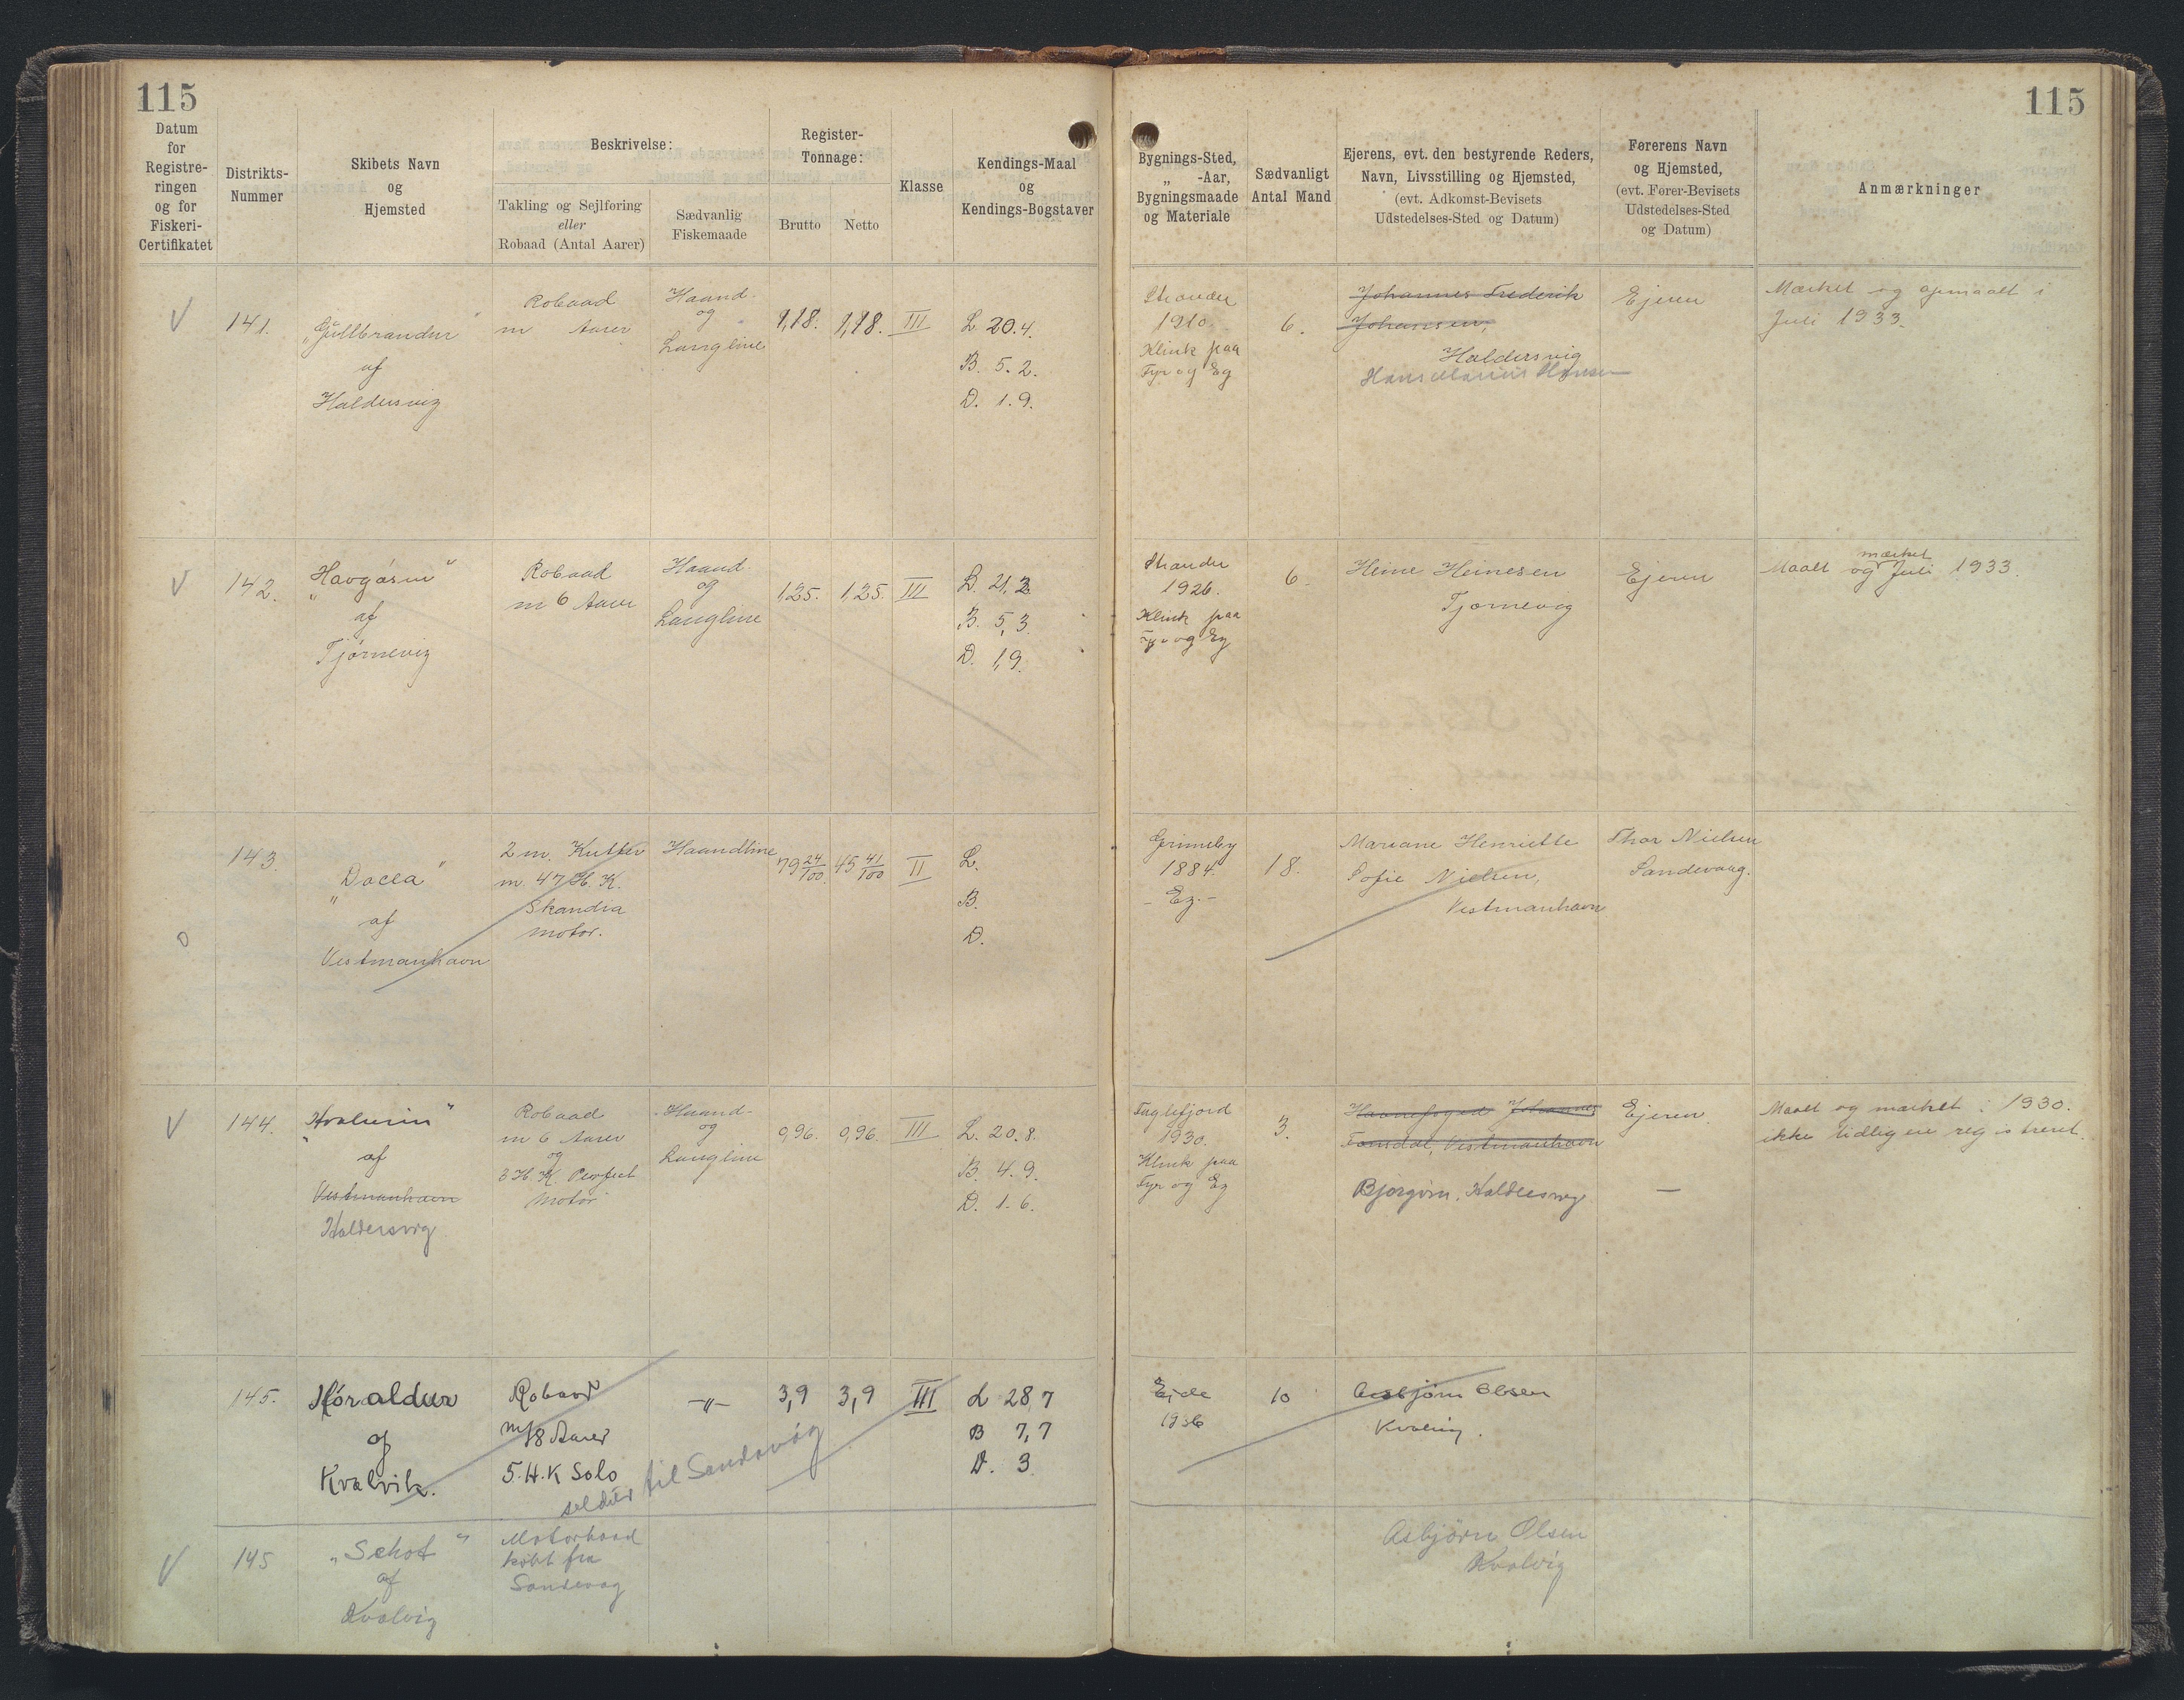 115
115
Datum
for
Registre-
ringen
og for
Fiskeri-
Certifikatet
Distrikts-
Nummer
Skibets Navn
og
Hjemsted
Beskrivelse:
Takling og Sejlføring
eller
Robaad (Antal Aarer)
Sædvanlig
Fiskemaade
Register-
Tonnage:
Brutto
Netto
Klasse
Kendings-Maal
og
Kendings-Bogstaver
Bygnings-Sted,
„ -Aar,
Bygningsmaade
og Materiale
Sædvanligt
Antal Mand
Ejerens, evt. den bestyrende Reders,
Navn, Livsstilling og Hjemsted,
(evt. Adkomst-Bevisets
Udstedelses-Sted og Datum)
Førerens Navn
og Hjemsted,
(evt. Fører-Bevisets
Udstedelses-Sted
og Datum)
Anmærkninger
V
141.
„Gullbrandur"
af
Haldersvig
Robaad
m Aarer
Haand-
og
Langline
1,18.
1,18.
III
L. 20.4.
B. 5.2.
D. 1.9.
Strander
1910.
Klink paa
Fyr og Eg
6.
Johannes Frederik
Johansen,
Haldersvig
Hans Marius Hansen
Ejeren
Mærket og opmaalt i
Juli 1933.
V
142.
„Havgásin"
af
Tjørnevig
Robaad
m 6 Aarer
Haand
og
Langline
1,25.
1,25.
III
L. 21,2
B. 5,3.
D. 1,9.
Strander
1926.
Klink paa
Fyr og Eg
6.
Heine Heinesen
Tjørnevig
Ejeren
mærket
Maalt og Juli 1933.
143.
„Dacia"
af
Vestmanhavn
2 m. Kutter
m. 47 H. K.
Skandia
Motor.
Haandline
79 24/100.
45 41/100
II
L.
B.
D.
Grimsby
1884.
- Eg. -
18.
Mariane Henriette
Sofie Nielsen,
Vestmanhavn
Thor Nielsen
Sandevaag.
V
144.
„Hvalurin"
af
Vestmanhavn
Haldersvig
Robaad
m 6 Aarer
og
3 H. K. Perfect
Motor
Haand-
og
Langline
0,96.
0,96.
III
L. 20.8.
B. 4.9.
D. 1.6.
Fuglefjord
1930.
Klink paa
Fyr og Eg
3.
Havnefoged Johannes
Vestmanhavn
Haldersvig
Ejeren
—
Maalt og mærket i 1930.
ikke tidligere registreret.
145.
Hóraldur
af
Kvalvik.
Robaad
m/8 Aarer
5. H.K Solo
seldur til Sandavág
-"-
3,9
3,9
III
L 28,7
B 7,7
D. 3
Eide
1936
10
Asbjørn Olsen
Kvalvig.
V
145
„Schot"
af
Kvalvig
Motorbaad
købt fra
Sandevag
Asbjörn Olsen
Kvalvig